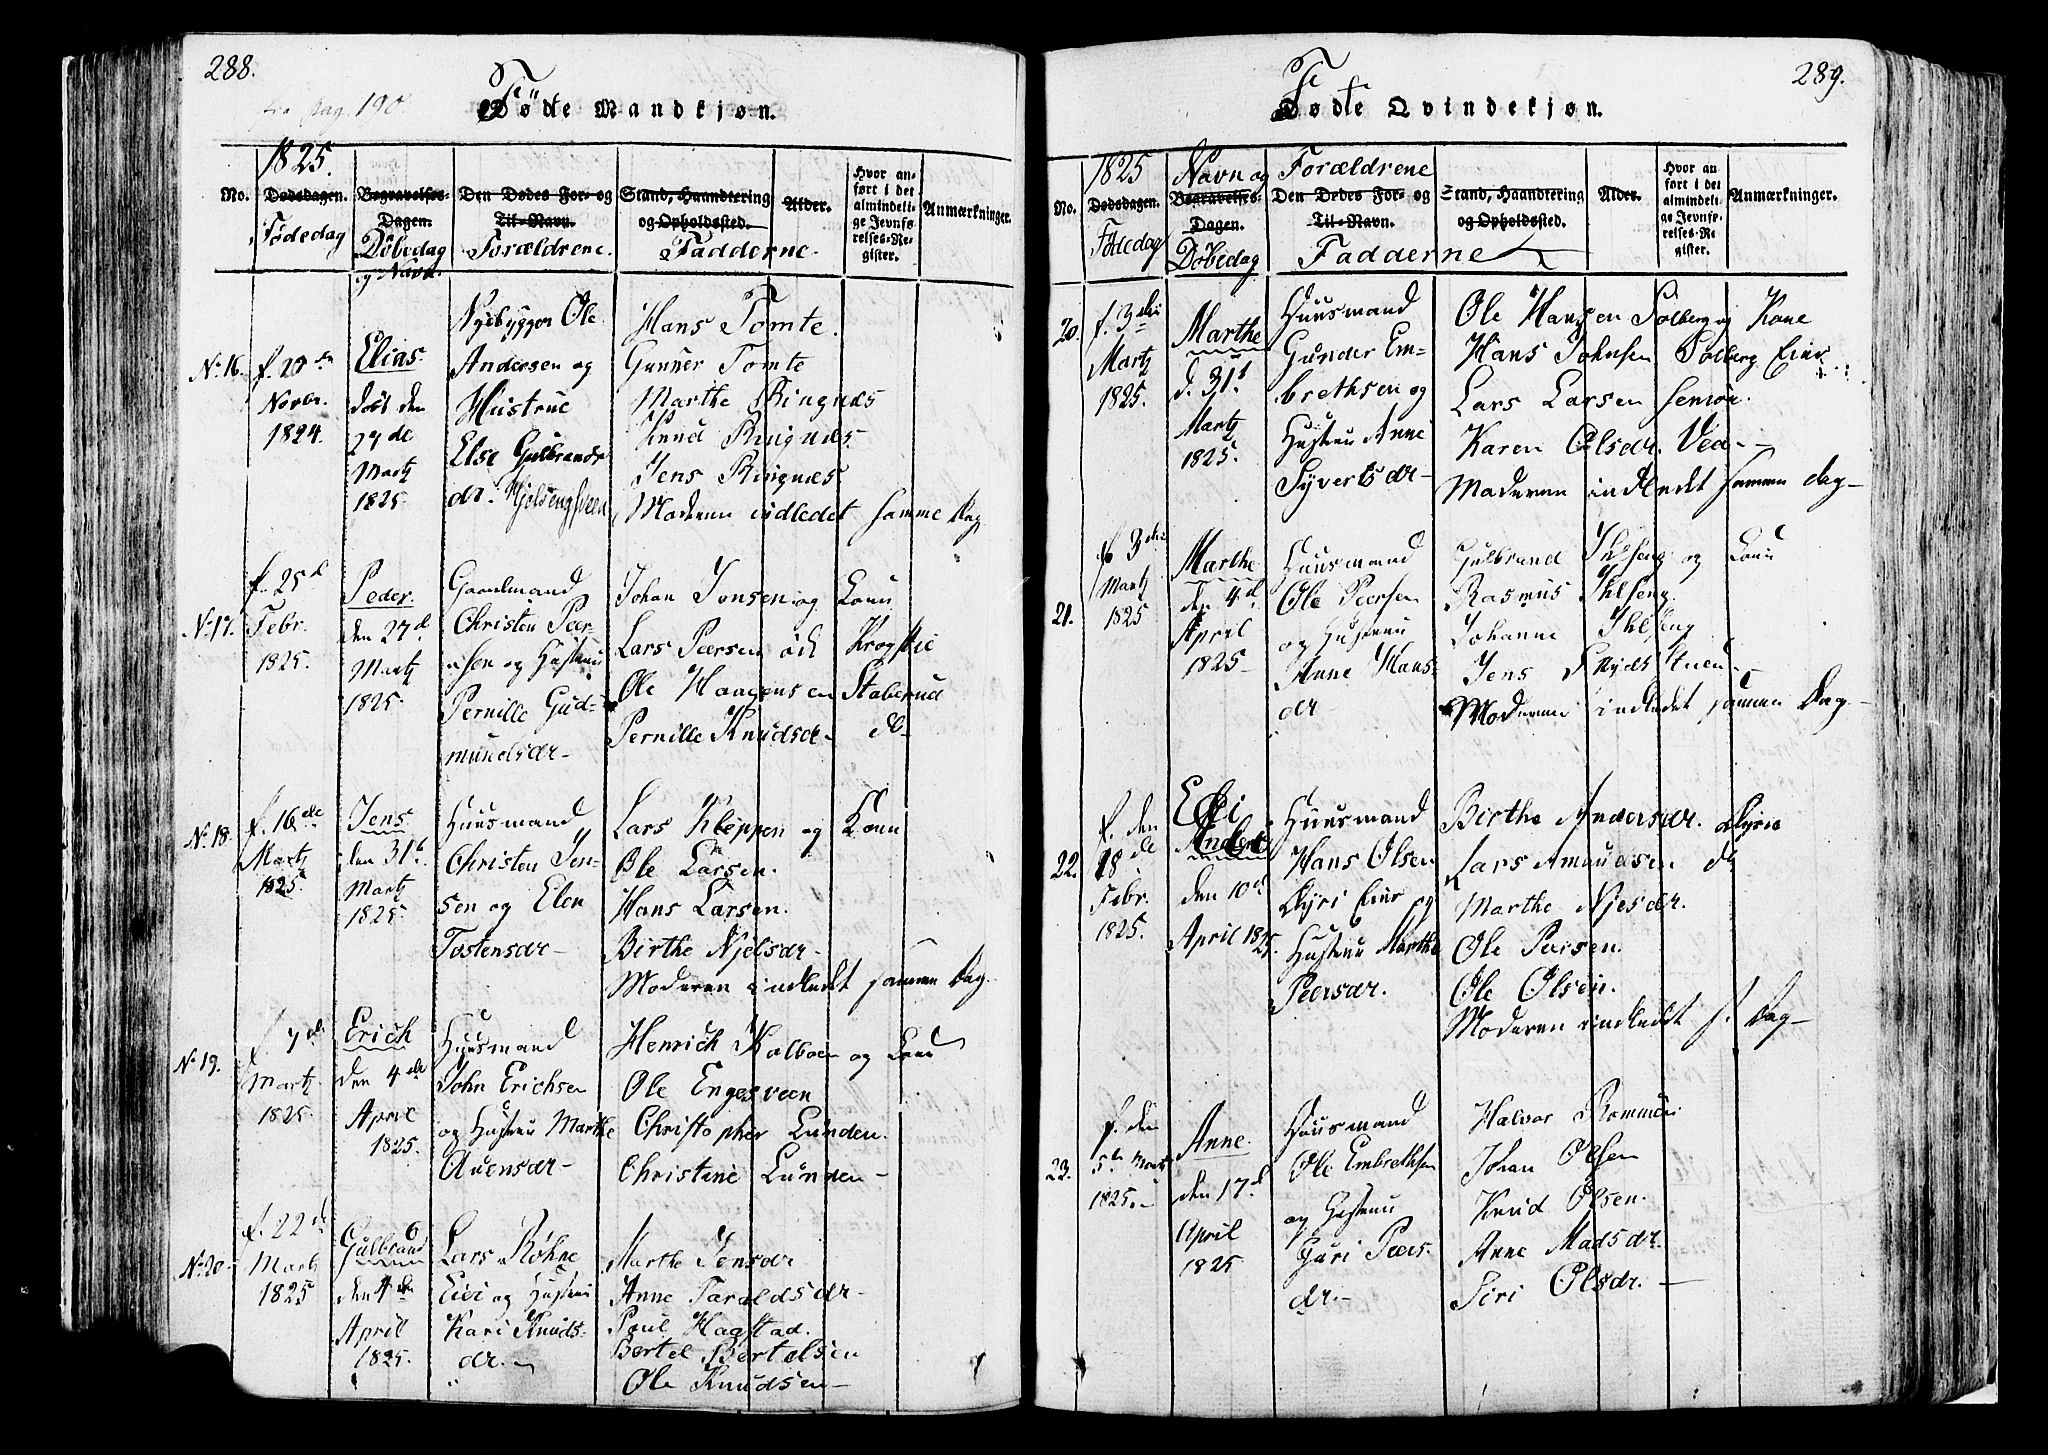 288.
fra pag. 190.
Föde Mandkjøn.
1825.
No.
Dødsdagen.
Fødedag
Begravelses-Dagen.
Døbedag
og Navn.
Den Dødes For- og Til-Navn.
Forældrene.
Stand, Haandtering og Opholdssted.
Fadderne.
Alder.
Hvor anført i det almindelige Jevnførelses-Register.
Anmærkninger.
No. 16.
Novbr.
1824.
Elias.
døbt den
27de
Martz
1825.
Nyebygger Ole
Andersen og
Hustrue
Else Gulbrands
dr.
Hans Tomte.
Gunner Tomte
Marthe Ringnæs
Knud Ringnæs
Jens Ringnæs
Moderen indledet samme Dag
No. 17.
f. 25d
Febr.
1825.
Peder.
den 27d
Martz
1825.
Gaardmand
Christen Peer-
sen og Hustrue
Pernille Gud-
mundsdr-
Johan Jensen og Kone
Lars Peersen
Ole Haagensen Staberud
Pernille Knudsdr- do-
No. 18.
f. 16de
Martz
1825.
Jens
den 31t
Martz
1825.
Huusmand
Christen Jen-
sen og Elen
Tostensdr-
Lars Kleppen og Kone
Ole Larsen.
Hans Larsen.
Birthe Njelsdr-
Moderen indledt samme Dag.
No. 19.
f. 7de
Martz
1825.
Erich
den 4de
April
1825.
Huusmand
John Erichsen
og Hustrue Marthe
Auensdr-
Henrich Kalboen og Kone
Ole Engesveen
Christopher Lunden.
Christine Lunden-
No. 20-
f. 22d
Martz
1825
Gulbrand
den 4de
April
1825.
Lars Røhne
Eier og Hustrue
Kari Knuds-
dr.-
Marthe Jensdr
Anne Taraldsdr-
Poul Hagstad.
Bertel Bertelsen
Ole Knudsen-
289.
Födte Qvindekjøn.
1825
No.
Dødsdagen.
Fødedag
Navn og
Begravelses-Dagen.
Døbedag
Forældrene
Den Dødes For- og Til-Navn.
Fadderne
Stand, Haandtering og Opholdssted.
Alder.
Hvor anført i det almindelige Jevnførelses-Register.
Anmærkninger.
20.
f. 3die
Martz
1825.
Marthe
d. 31t
Martz
1825.
Huusmand
Gunder Em-
brethsen og
Hustrue Anne
Syvertsdr-
Ole Hansen Solberg og Kone
Hans Johnsen Solberg Eier
Lars Larsen senior.
Karen Olsdr.
Moderen indledt samme dag-
21.
f 3die
Martz
1825
Marthe
den 4d
April
1825-
Huusmand
Ole Peersen
og Hustrue
Anne Hans-
dr
Gulbrand Ihlseng og Kone
Rasmus Ihlseng.
Johanne Ihlseng
Jens
Moderen indledet samme Dag-
22.
f. den
18de
Febr.
1825.
Eli
den 10d
April 1825.
Huusmand
Hans Olsen
og
Hustrue Marthe
Peersdr.
Birthe Andersdr.
Lars Amundsen do
Marthe Njesdr.
Ole Peersen.
Ole Olsen.
Moderen indledet s. Dag-
23.
f. den
5te Martz
1825.-
Anne.
den 17d
April
1825
Huusmand
Ole Embrethsen
og Hustrue
Guri Peers-
dr.-
Halvor
Johan Olsen
Knud Olsen.
Anne Madsdr.
Siri Olsdr.-